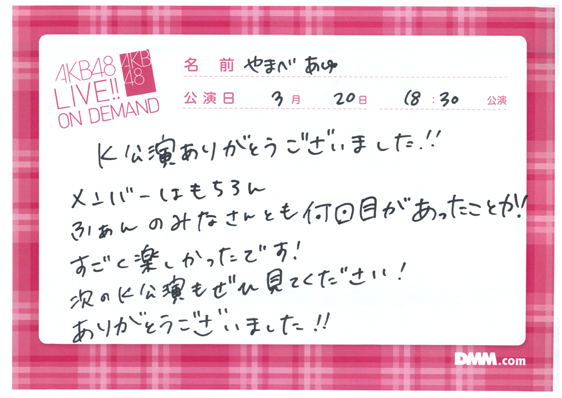 AKB48
LIVE!!
ON DEMAND
AKB
48
名 前 やまべ あゆ
公演日 3月 20日 18:30 公演
K公演ありがとうございました!!
メンバーはもちろん
ふぁんのみなさんとも何回目があったことか!
すごく楽しかったです!
次のK公演もぜひ見てください!
ありがとうございました!!
DMM.com